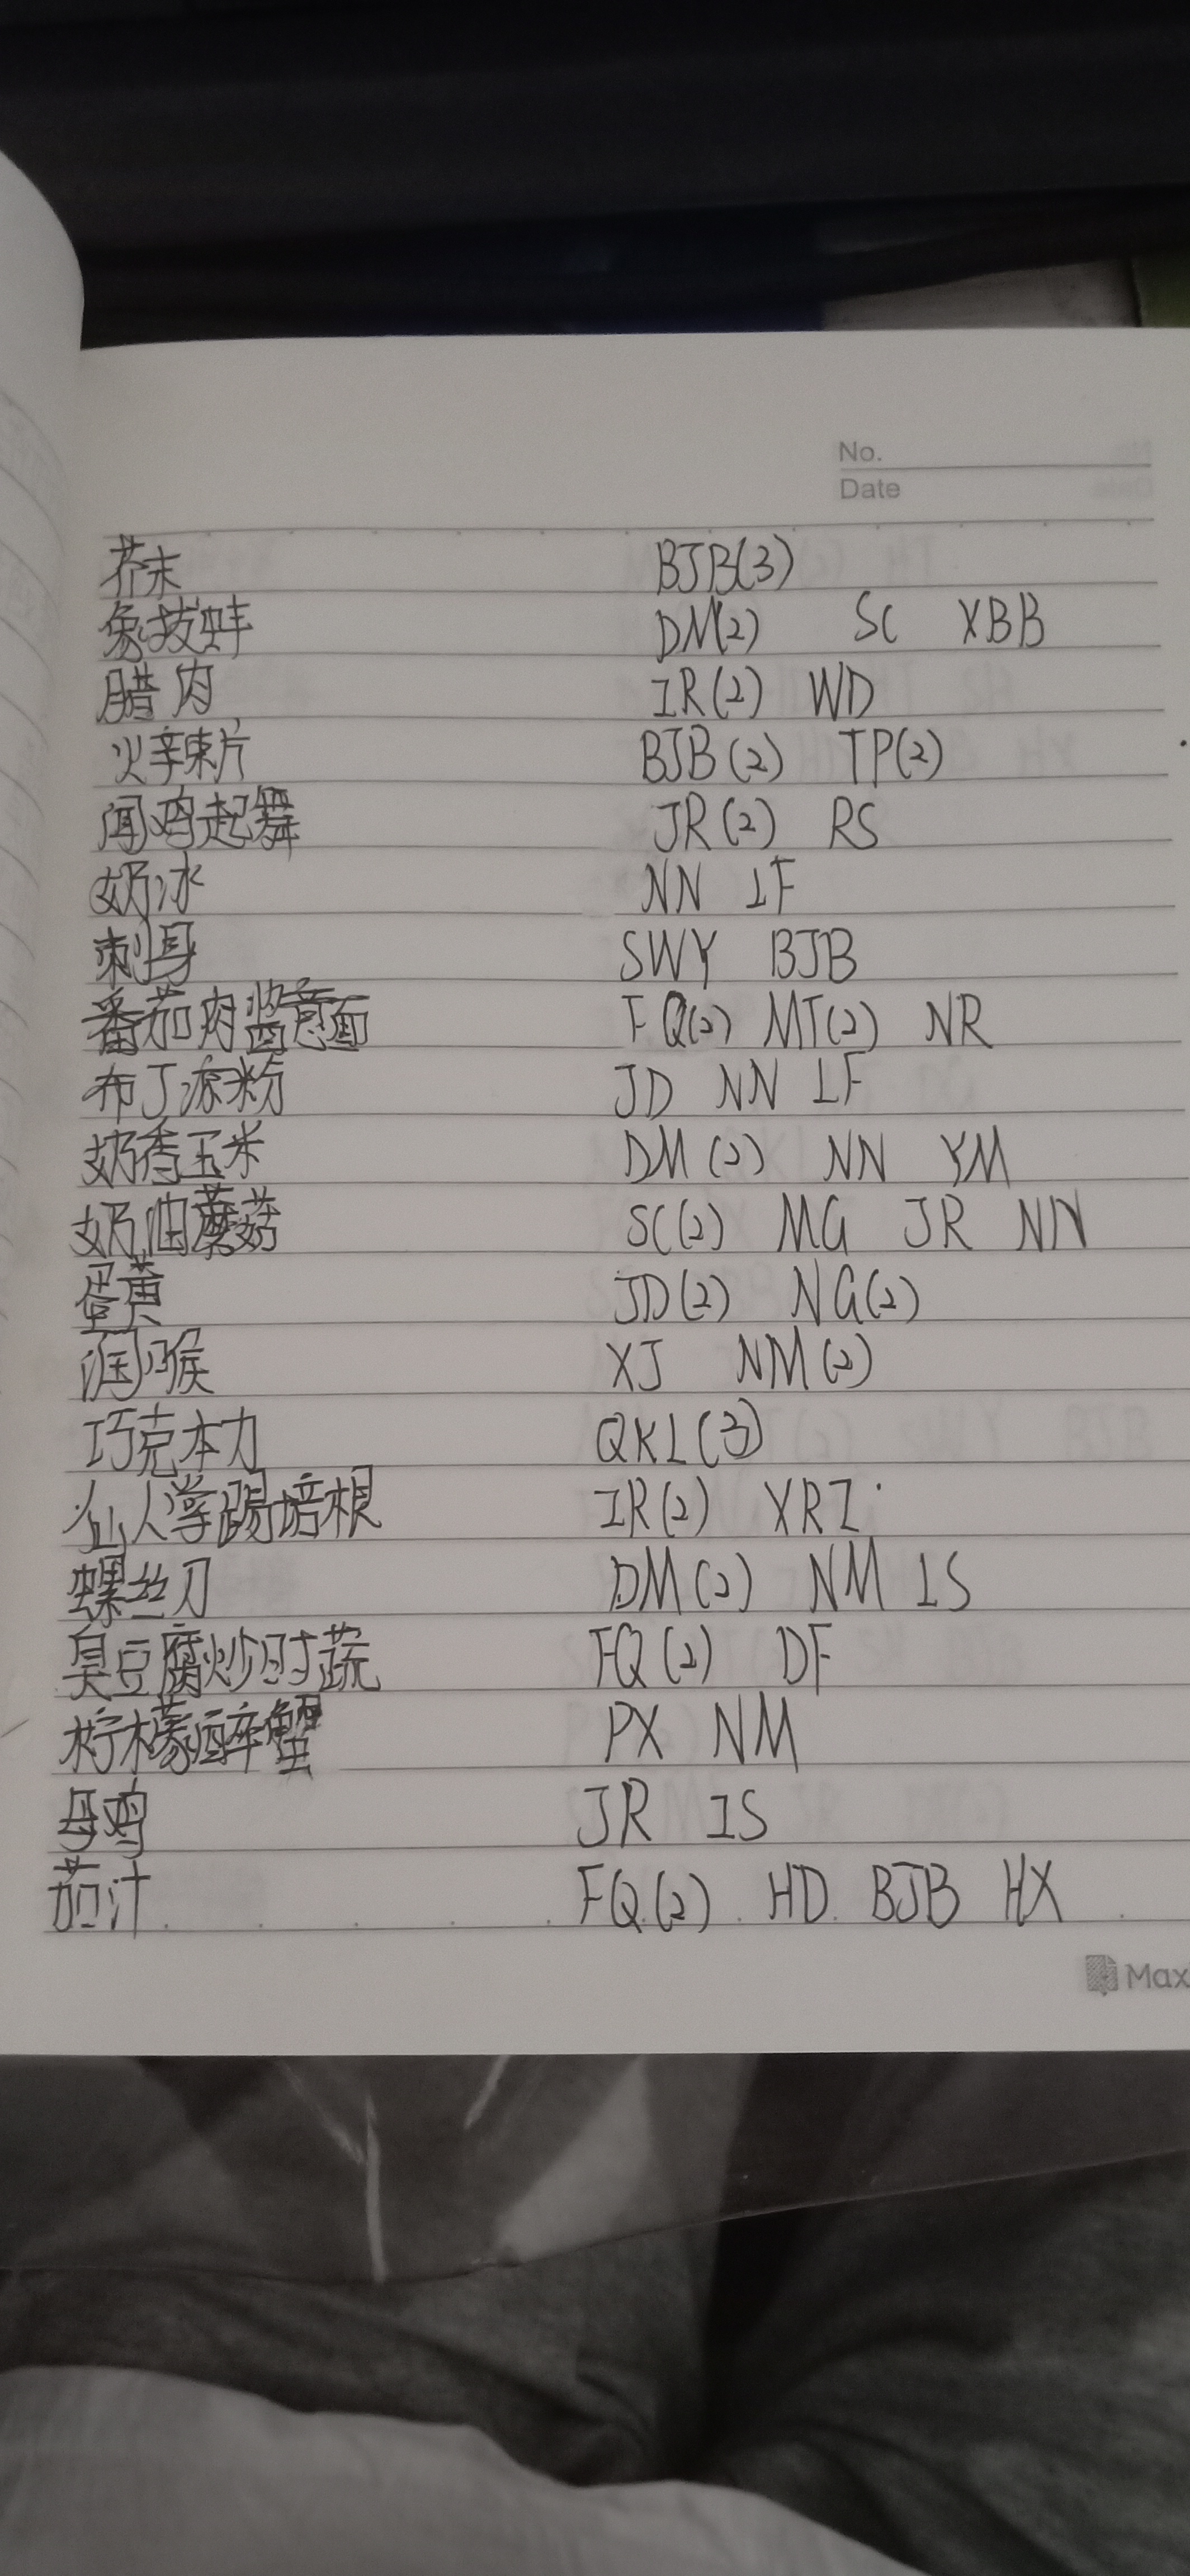 No.
Date
芥末 BJB(3)
象拔蚌 DM(2) SC XBB
腊肉 IR(2) WD
火辣片 BJB(2) TP(2)
闻鸡起舞 JR(2) RS
奶冰 NN LF
刺身 SWY BJB
番茄肉酱意面 FQ(2) MT(2) NR
布丁凉粉 JD NN LF
奶香玉米 DM(2) NN YM
奶油蘑菇 SC(2) MG JR NN
蛋黄 JD(2) NG(2)
润喉 XJ NM(2)
巧克本力 QKL(3)
仙人掌踢培根 IR(2) XRZ
螺丝刀 DM(2) NM LS
臭豆腐炒时蔬 FQ(2) DF
柠檬醉蟹 PX NM
母鸡 JR IS
茄汁 FQ(2) HD BJB HX
Max